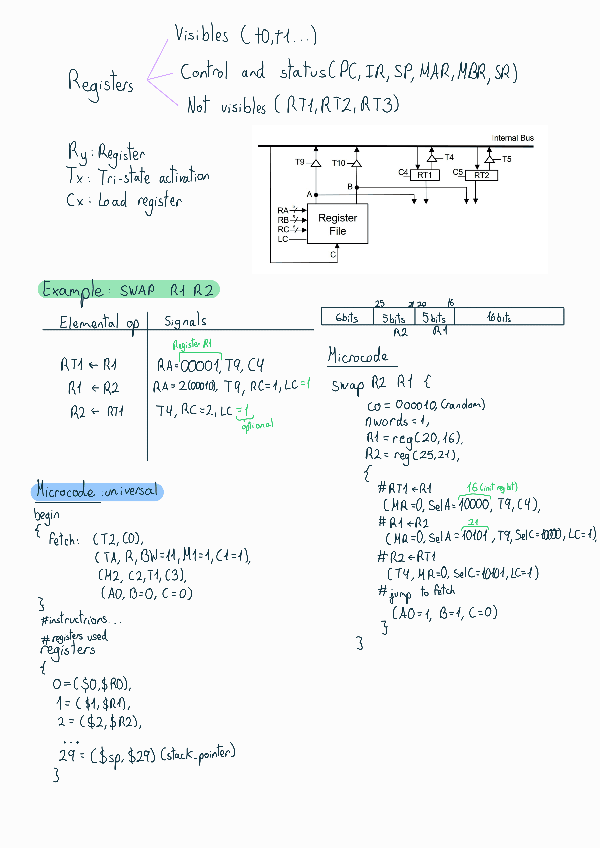 Visibles (t0,t1...)
Registers
Control and status (PC, IR, SP, MAR, MBR, SR)
Not visibles (RT1, RT2, RT3)
Ry: Register
Tx: Tri-state activation
Cx: Load register
Internal Bus
T9
T10
T4
T5
C4
RT1
C5
RT2
A
B
RA
RB
RC
LC
Register
File
C
Example: SWAP R1 R2
Elemental op
Signals
Register R1
RT1 ← R1
RA=00001, T9, C4
R1 ← R2
RA=2(00010), T9, RC=1, LC=1
R2 ← RT1
T4, RC=2, LC=1
optional
25
21 20
16
6bits
5bits
5bits
16bits
R2
R1
Microcode
Swap R2 R1 {
co = 000010, (random)
nwords = 1,
R1 = reg(20,16),
R2 = reg(25,21),
{
#RT1←R1
16 (init reg bt)
(MR=0, SelA=10000, T9, C4),
#R1←R2
21
(MR=0, SelA=10101, T9, SelC=10000, LC=1)
#R2←RT1
(T4, MR=0, SelC=10101, LC=1)
# jump to fetch
(A0=1, B=1, C=0)
}
}
Microcode universal
begin
{
fetch: (T2, C0),
(TA, R, BW=11, M1=1, C1=1),
(M2, C2, T1, C3),
(A0, B=0, C=0)
}
#instructrions...
#registers used
registers
{
0=($0,$R0),
1=($1,$R1),
2=($2,$R2),
...
29=($sp, $29) (stack_pointer)
}